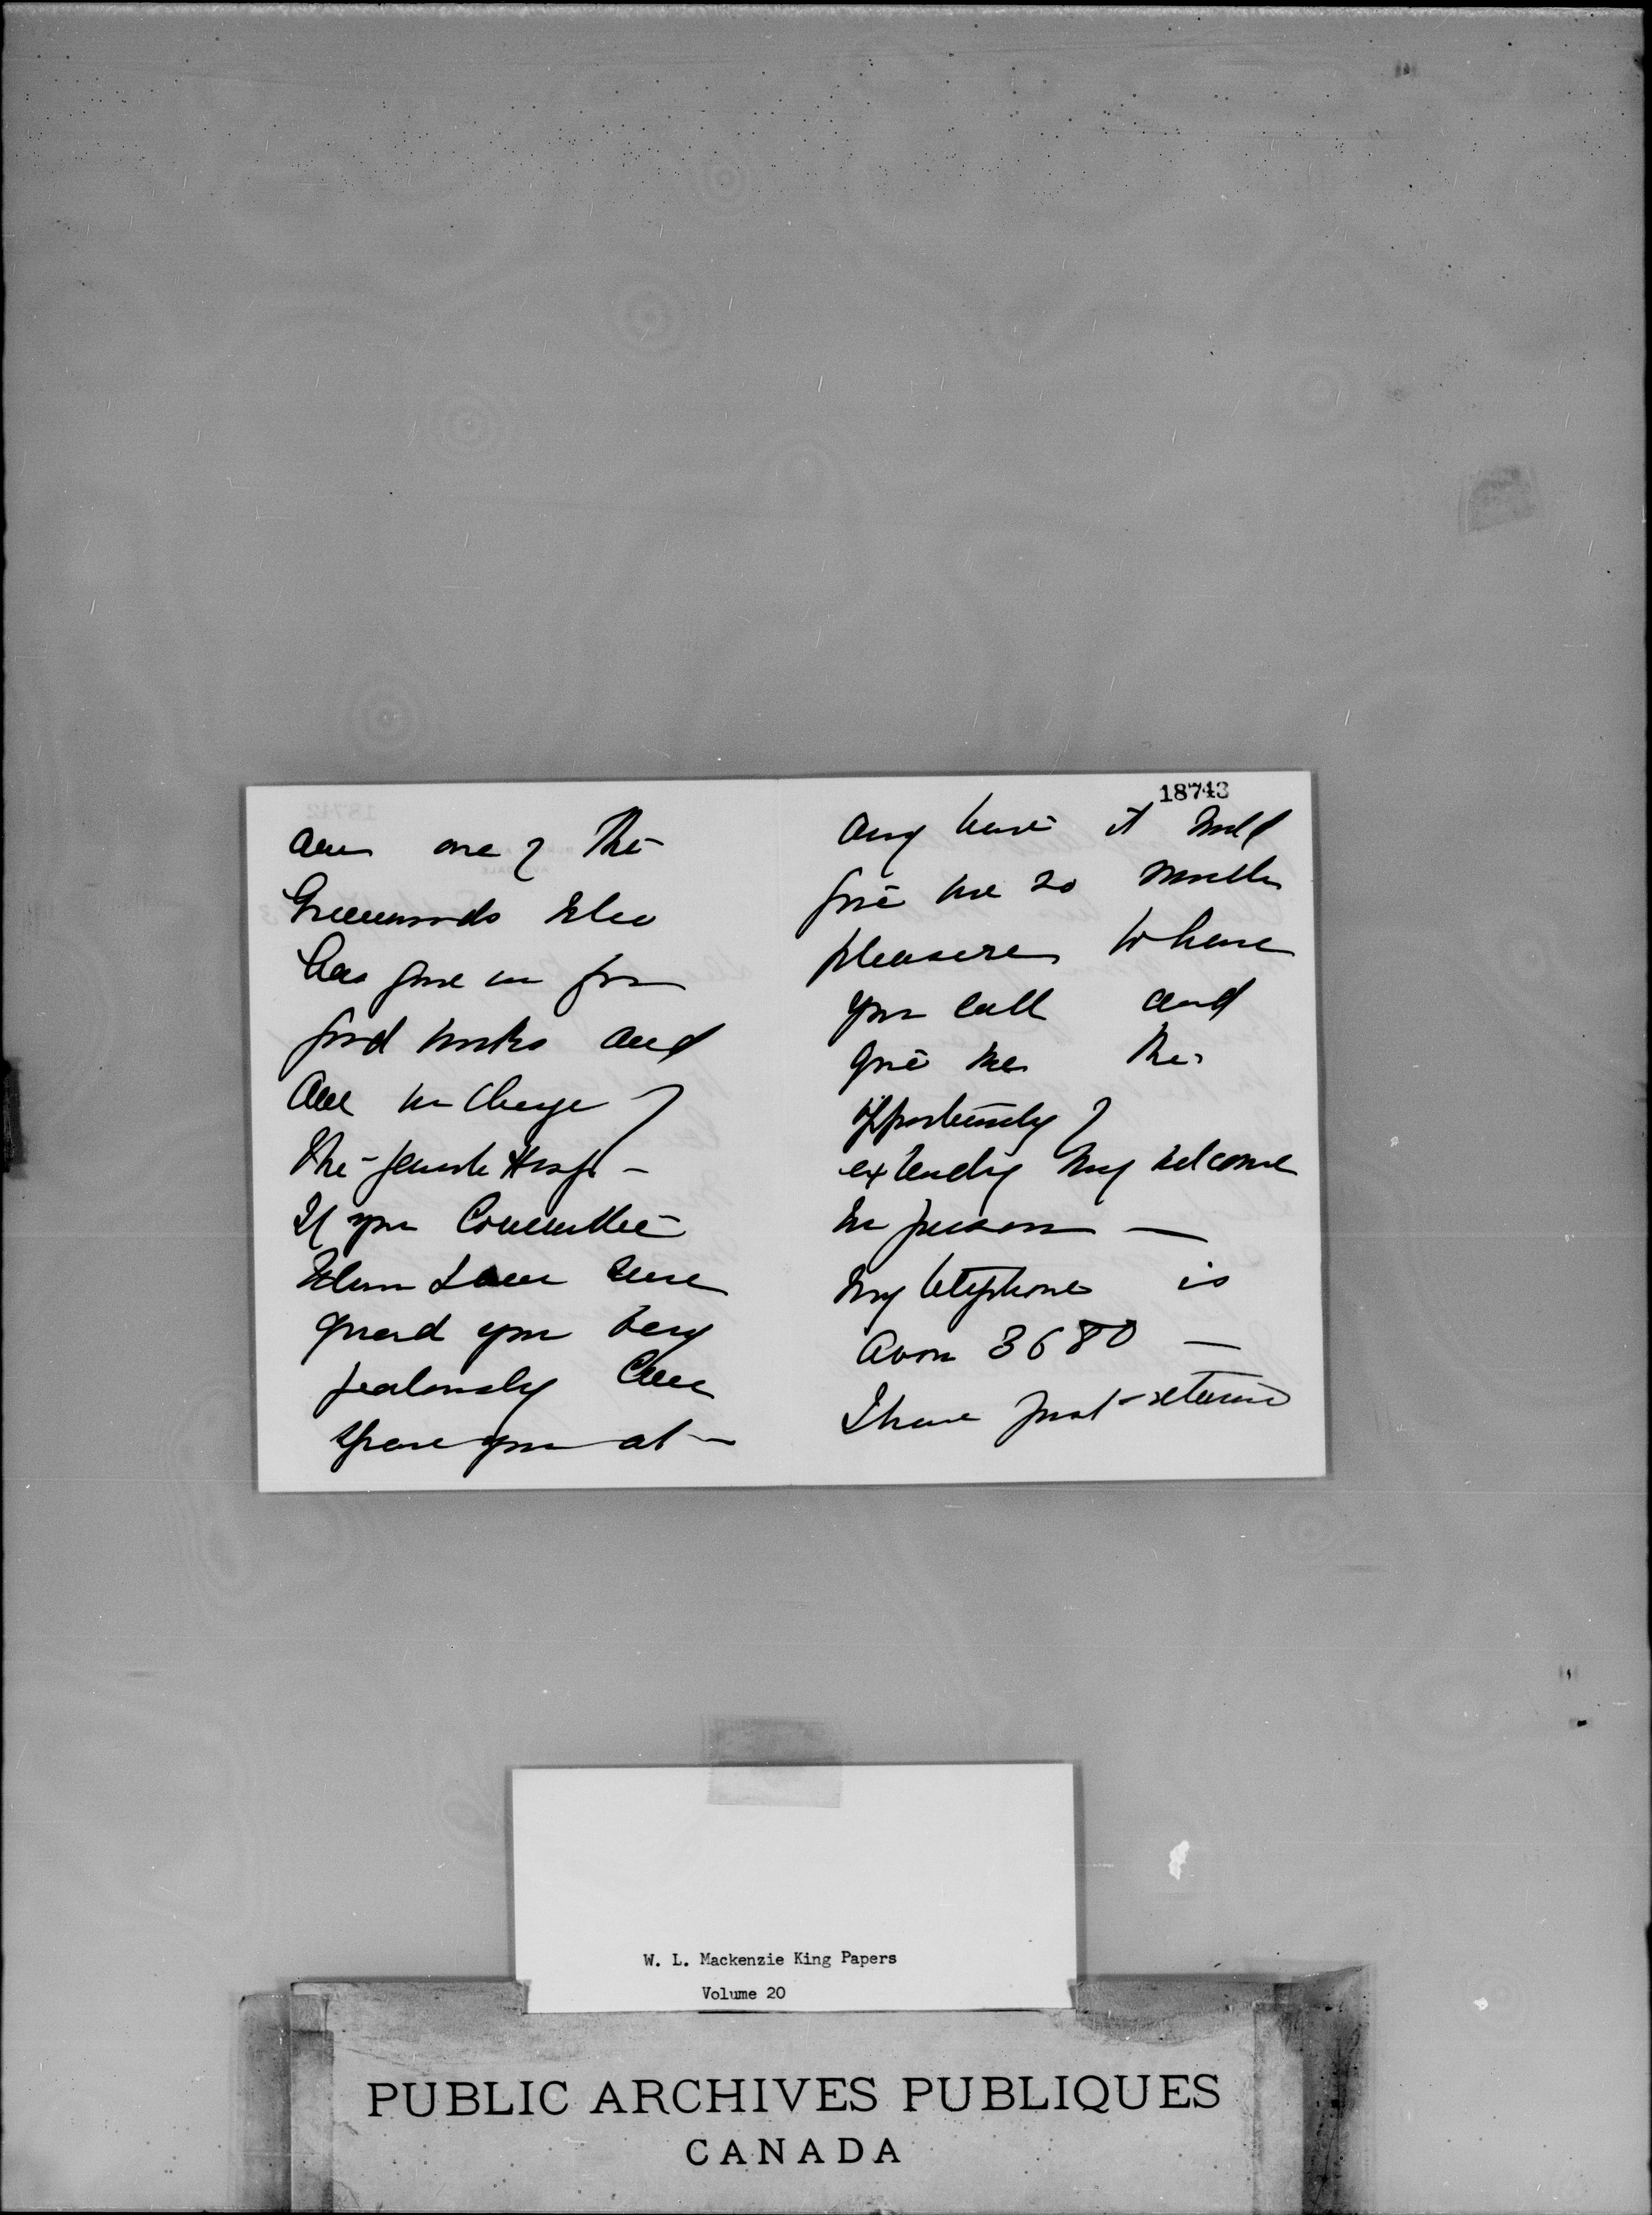 am one of the
Greenwoods who
has gone in for
good works and
am in charge of
the Jewish Hosp. -
If your Committee
whom I am sure
guard you very
jealously can
spare you at -
18743
any time it will
give me so much
pleasure to have
you call and
give me the
opportunity of
extending my welcome
in person -
My telephone is
Avon 3680 -
I have just returned
W. L. Mackenzie King Papers
Volume 20
PUBLIC ARCHIVES PUBLIQUES
CANADA